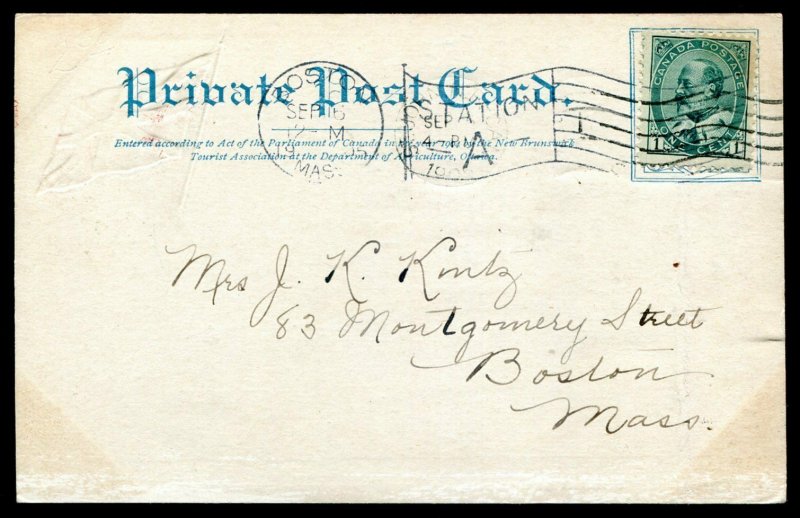 Private Post Card.
Entered according to Act of the Parliament of Canada in the year 1904 by the New Brunswick
Tourist Association at the Department of Agriculture, Ottawa.
BOSTON
SEP 16
12 - M
MASS
STATION
SEP
A
CANADA POSTAGE
1 ONE CENT 1
Mrs J. K. Kintz
83 Montgomery Street
Boston
Mass.